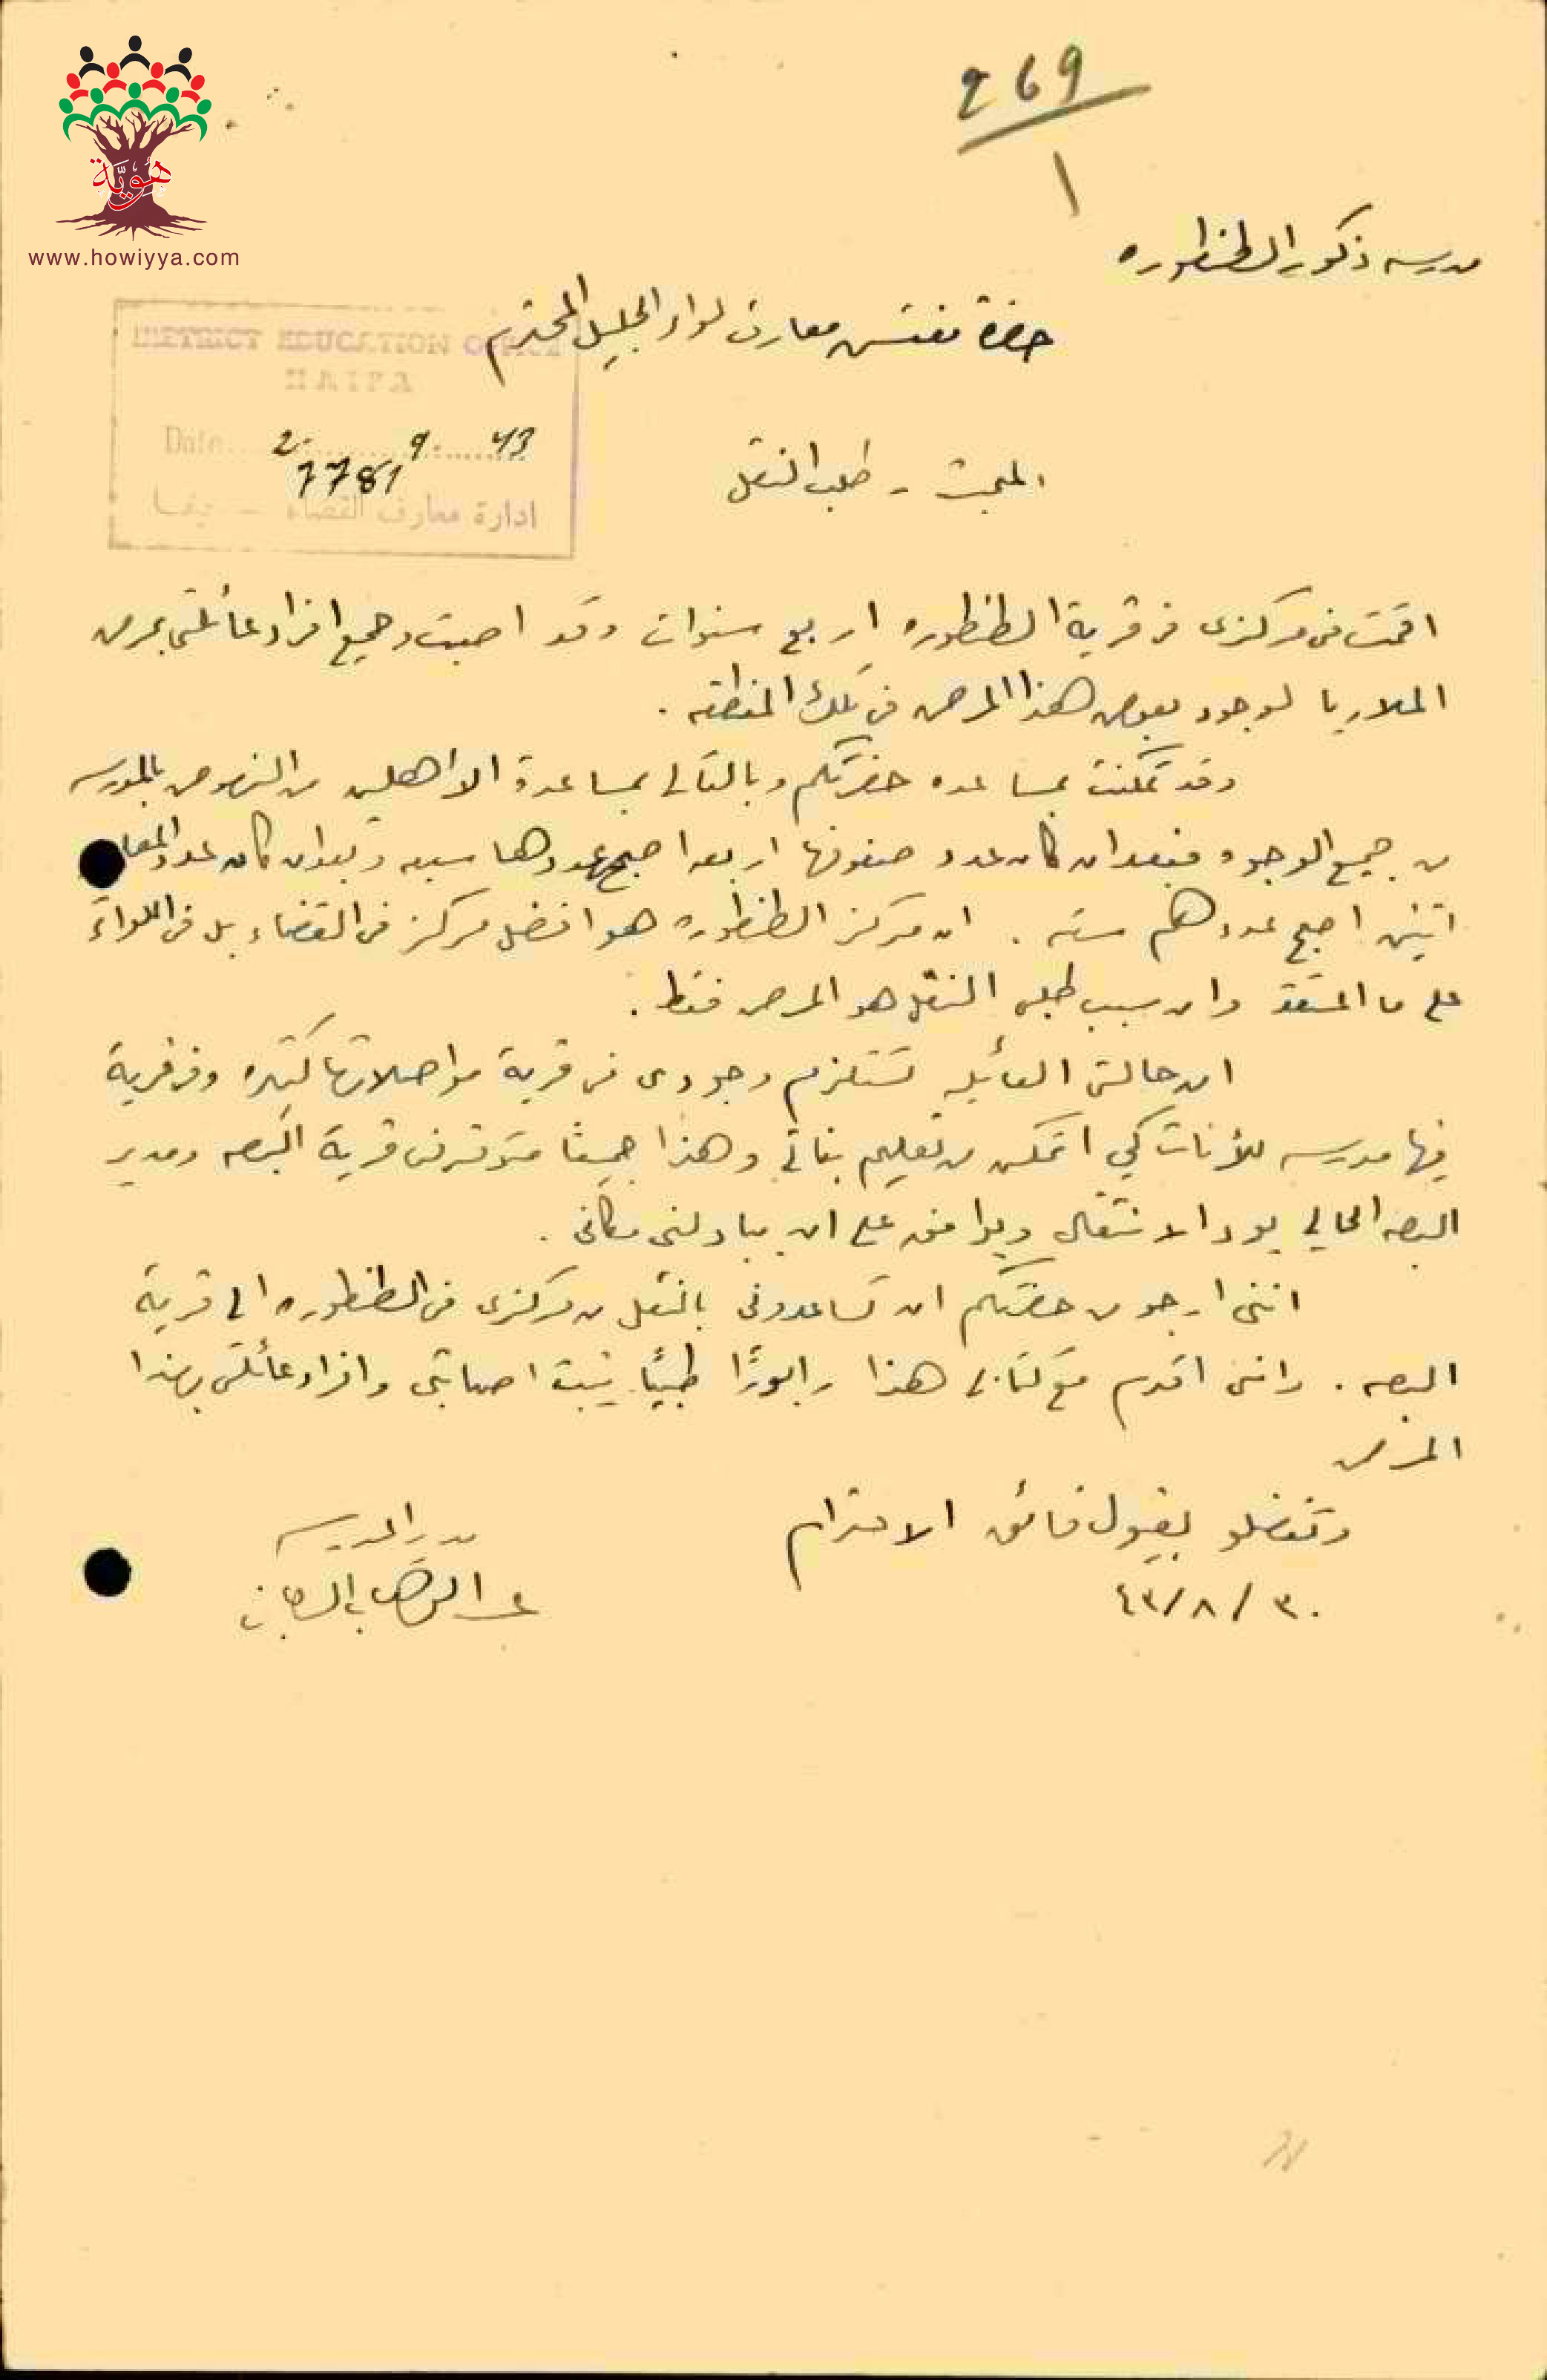 269
١
هوية
www.howiyya.com
مدرسه ذكور الطنطوره
حضرة مفتش معارف لواء الجليل المحترم
DISTRICT EDUCATION OFFICE
HAIFA
Date 2. 9. 43
7781
ادارة معارف القضاء - حيفا
المبحث - طلب النقل
اقمت في مركزي في قرية الطنطوره اربع سنوات وقد اصبت وجميع افراد عائلتي بمرض
الملاريا لوجود بعوض هذا المرض في تلك المنطقه .
وقد تمكنت بمساعده حضرتكم وبالتالي بمساعدة الاهلين من النهوض بالمدرسه
من جميع الوجوه فبعد ان كان عدد صفوفها اربعه اصبح عددها سبعه وبعد ان كان عدد
اثنين اصبح عددهم سته . ان مركز الطنطوره هو افضل مركز في القضاء بل في اللواء
على ما اعتقد وان سبب طلبي النقل هو المرض فقط .
ان حالتي العائليه تستلزم وجودي في قرية مواصلاتها كثيره وفي قرية
فيها مدرسه للأناث كي اتمكن من تعليم بناتي وهذا جميعًا متوفر في قرية البصه ومدير
البصه الحالي يود الانتقال ويوافق على ان يبادلني مكاني .
انني ارجو من حضرتكم ان تساعدوني بالنقل من مركزي في الطنطوره الى قرية
البصه . وانني اقدم مع كتابي هذا رابورًا طبيًا يثبت اصابتي وافراد عائلتي بهذا
المرض
وتفضلو بقبول فائق الاحترام
مدير المدرسه
٣٠/٨/٤٣
عبد الوهاب